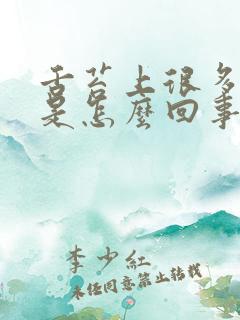 舌苔上很多
是怎麼回事
李少紅
未经同意禁止转载